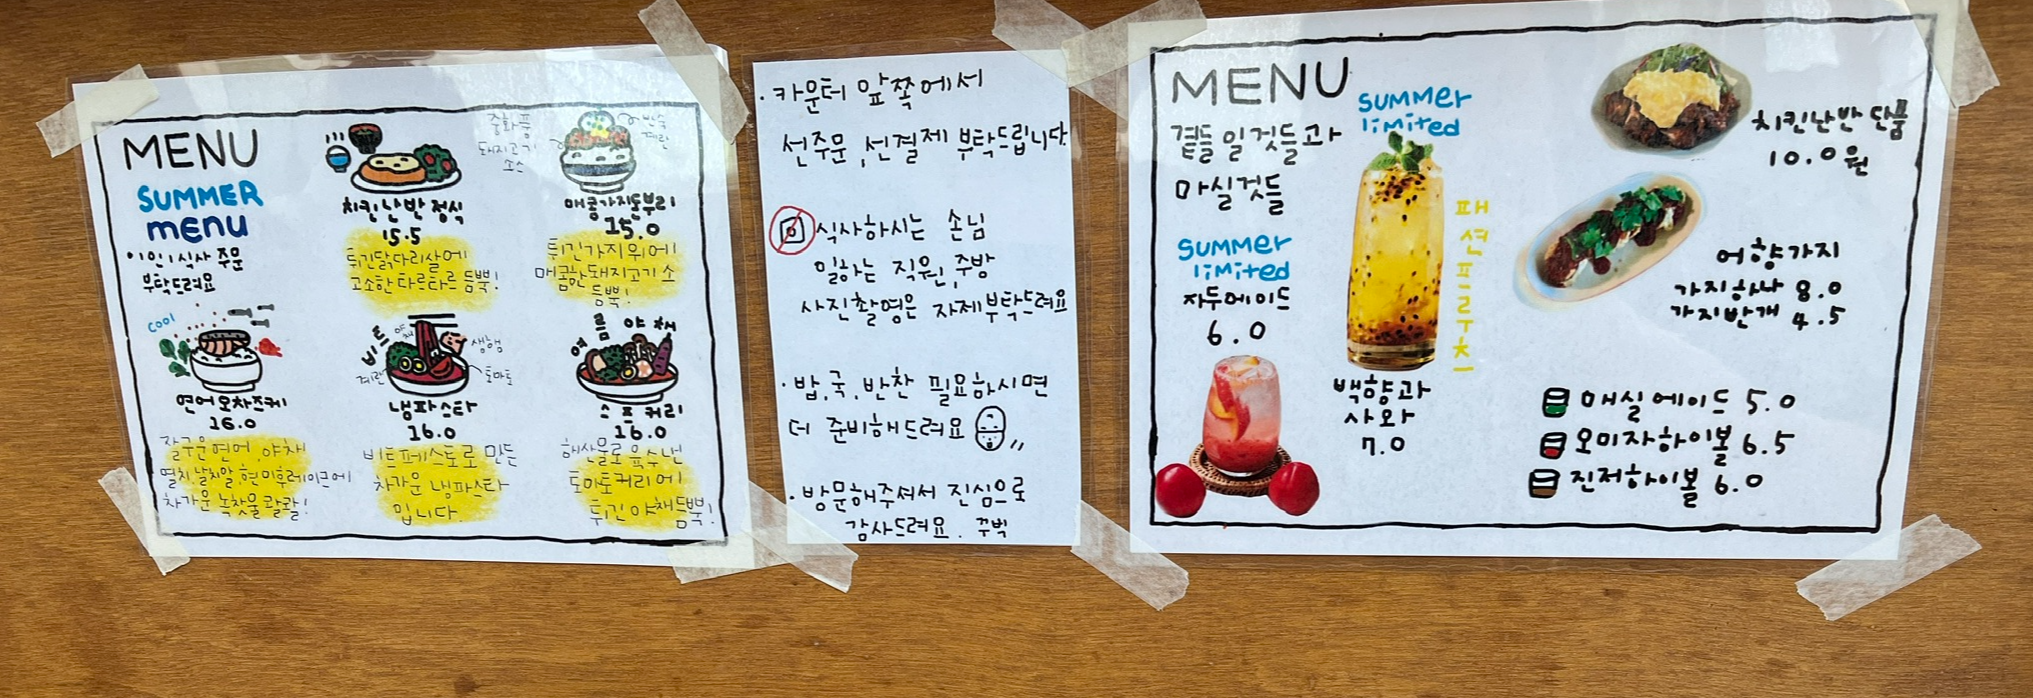 MENU
SUMMER
menu
·1인 1식사 주문
부탁드려요
치킨난반 정식
15.5
튀긴닭다리살에
고소한 타르타르 듬뿍!
중화풍
돼지고기
소스
반숙
계란
매콤가지돈부리
15.0
튀긴가지위에
매콤한 돼지고기 소스
듬뿍!
COOL
연어 오차즈케
16.0
잘구운 연어, 야채
멸치, 날치알, 현미후레이크에
차가운 녹찻물 콸콸!
비트
야채
생햄
계란
토마토
냉파스타
16.0
비트페스토로 만든
차가운 냉파스타
입니다.
여름야채
스프커리
16.0
해산물로 육수낸
토마토커리에
튀긴야채듬뿍!
·카운터 앞쪽에서
선주문, 선결제 부탁드립니다.
식사하시는 손님
일하는 직원, 주방
사진촬영은 자제부탁드려요
·밥, 국, 반찬 필요하시면
더 준비해드려요
·방문해주셔서 진심으로
감사드려요. 꾸벅
MENU
곁들일것들과
마실것들
SUMMER
limited
자두에이드
6.0
SUMMER
limited
패션프루츠!
백향과
사와
7.0
치킨난반 단품
10.0원
어향가지
가지하나 8.0
가지반개 4.5
매실에이드 5.0
오미자하이볼 6.5
진저하이볼 6.0